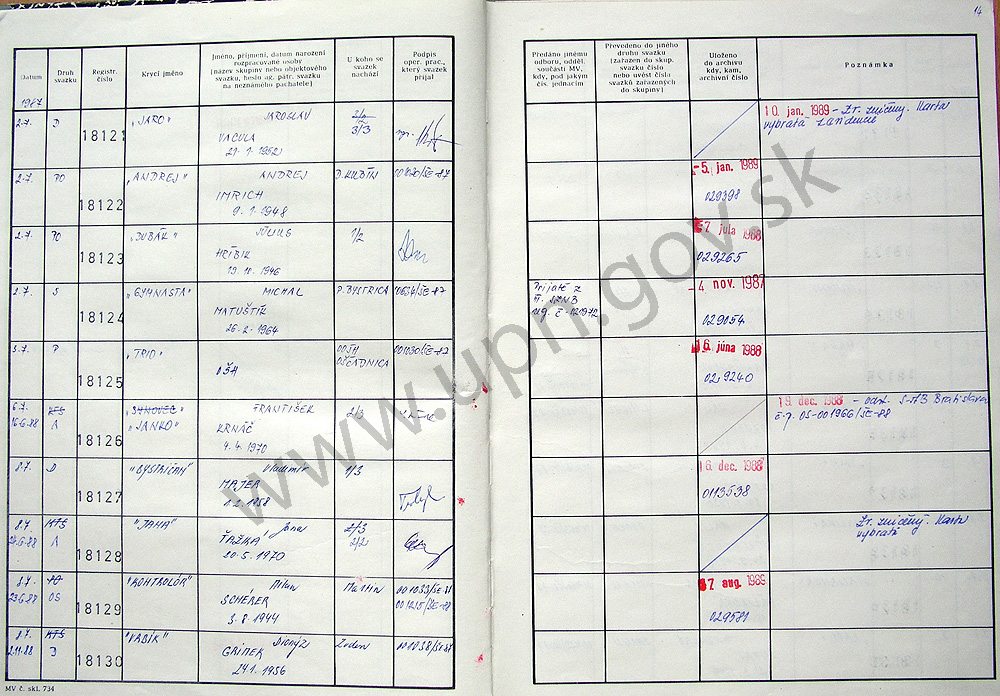 14
Datum
Druh svazku
Registr. číslo
Krycí jméno
Jméno, příjmení, datum narození
rozpracované osoby
(název skupiny nebo objektového
svazku, heslo ag. pátr. svazku
na neznámého pachatele)
U koho se
svazek
nachází
Podpis
oper. prac.,
který svazek
přijal
Předáno jinému
odboru, odděl.
součásti MV,
kdy, pod jakým
čís. jednacím
Převedeno do jiného
druhu svazku
(zařazen do skup.
svazku číslo
nebo uvést čísla
svazků zařazených
do skupiny)
Uloženo
do archivu
kdy, kam,
archivní číslo
Poznámka
1987
2.7. D 18121 "JARO" JAROSLAV 2/2
VACULA 3/3
21.1.1952
10. jan. 1989 - Zr. zničený. Karta
vybratá
2.7. PO 18122 "ANDREJ" ANDREJ D. KUBÍN 001030/SE-87
IMRICH
9.1.1948
-5. jan. 1989
029398
2.7. PO 18123 "DUBÁK" JÚLIUS 1/2
19.10.1946
7 júla 1988
029265
2.7. S 18124 "GYMNASTA" MICHAL P. BYSTRICA
MATUŠTÍK
26.2.1964
Prijaté z
-4. nov. 1987
029054
3.7. P 18125 "TRIO" OŠH
OŠČADNICA 001030/SE-87
16. júna 1988
029240
6.7. KTS 18126 "SYNOVEC" FRANTIŠEK 2/3
16.6.88 A "JANKO" KRNÁČ
4.4.1970
19. dec. 1988 - odst. S-ŠtB Bratislava
č.p. OS-001966/SE-88
8.7. D 18127 "BYSTRIČAN" Vladimír 1/3
MAJER
1.2.1958
16. dec. 1988
0113538
8.7. KTS 18128 "JAHA" Jana 2/3
A ŤAŽKÁ 2/2
20.5.1970
Zr. zničený. Karta
vybratá
8.7. PO 18129 "KONTROLÓR" Milan Martin
23.6.87 OS SCHERER
3.8.1944
7 aug. 1989
029581
8.7. KTS 18130 "VABÍK" Dionýz Zvolen
2.11.88 D
24.1.1956
MV č. skl. 734
www.upn.gov.sk